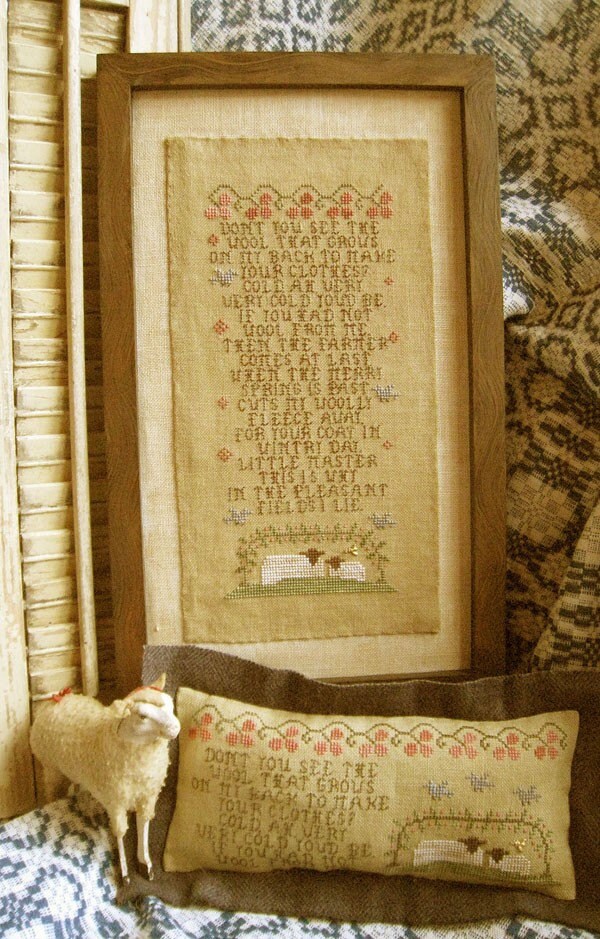 DON'T YOU SEE THE
WOOL THAT GROWS
ON MY BACK TO MAKE
YOUR CLOTHES?
COLD AH VERY
VERY COLD YOU'D BE,
IF YOU HAD NOT
WOOL FROM ME.
THEN THE FARMER
COMES AT LAST
WHEN THE MERRY
SPRING IS PAST
CUTS MY WOOLLY
FLEECE AWAY,
FOR YOUR COAT IN
WINTRY DAY,
LITTLE MASTER
THIS IS WHY
IN THE PLEASANT
FIELDS I LIE.
DON'T YOU SEE THE
WOOL THAT GROWS
ON MY BACK TO MAKE
YOUR CLOTHES?
COLD AH VERY
VERY COLD YOU'D BE
IF YOU HAD NOT